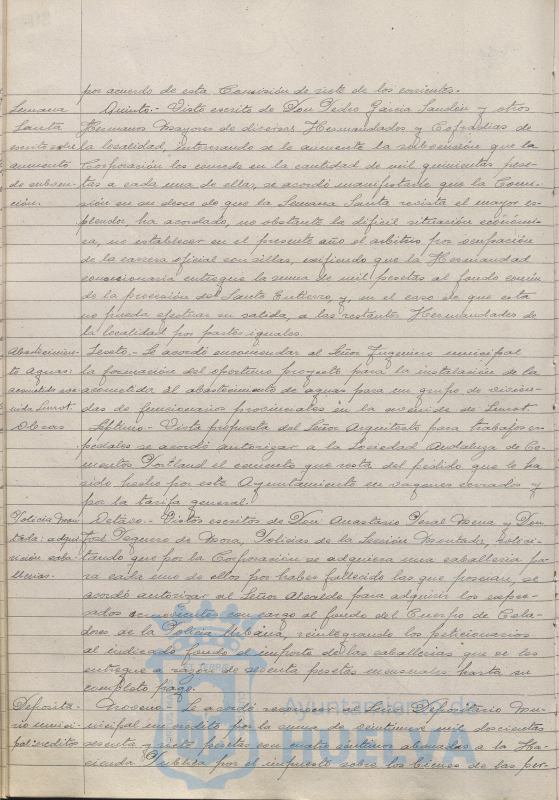 por acuerdo de esta Comisión de siete de los corrientes.
Semana Quinto.- Visto escrito de Don Pedro García Sandín y otros
Santa Hermanos Mayores de diversas Hermandades y Cofradías de
escrito sobre la localidad, interesando se le aumente la subvención que la
aumento Corporación les concede en la cantidad de mil quinientas pese-
de subven- tas a cada una de ellas, se acordó manifestarle que la Comi-
ción. sión en su deseo de que la Semana Santa revista el mayor es-
plendor ha acordado, no obstante la difícil situación económi-
ca, no establecer en el presente año el arbitrio por ocupación
de la carrera oficial con sillas, exigiendo que la Hermandad
concesionaria entregue la suma de mil pesetas al fondo común
de la procesión del Santo Entierro, y, en el caso de que esta
no pueda efectuar su salida, a las restantes Hermandades de
la localidad por partes iguales.
Abastecimien- Sexto.- Se acordó encomendar al Señor Ingeniero municipal
to Aguas: la formación del oportuno proyecto para la instalación de la
acometida ave- acometida al abastecimiento de aguas para un grupo de vivien-
nida das de funcionarios provinciales en la avenida de
Obras Séptimo.- Vista propuesta del Señor Arquitecto para trabajos
se acordó autorizar a la Sociedad Andaluza de Ce-
mentos Portland el cemento que resta del pedido que le ha
sido hecho por este Ayuntamiento en vagones cerrados y
por la tarifa general.
Policía Mon- Octavo.- Vistos escritos de Don Anastasio Peral Mena y Don
tada: adqui- José de Mora, Policías de la Sección Montada, solici-
sición caba- tando que por la Corporación se adquiera una caballería pa-
llerías. ra cada uno de ellos por haber fallecido las que poseían, se
acordó autorizar al Señor Alcalde para adquirir los expre-
sados semovientes con cargo al fondo del Cuerpo de Cela-
dores de la Policía Urbana, reintegrando los peticionarios
al indicado fondo el importe de las caballerías que se les
entregue a razón de setenta pesetas mensuales hasta su
completo pago.
Deposita- Noveno.- Se acordó reconocer al Señor Depositario mu-
rio munici- nicipal un crédito por la suma de veintinueve mil doscientas
pal: créditos sesenta y siete pesetas con cuatro céntimos abonadas a la Ha-
cienda Pública por el impuesto sobre los bienes de las per-
Ayuntamiento de